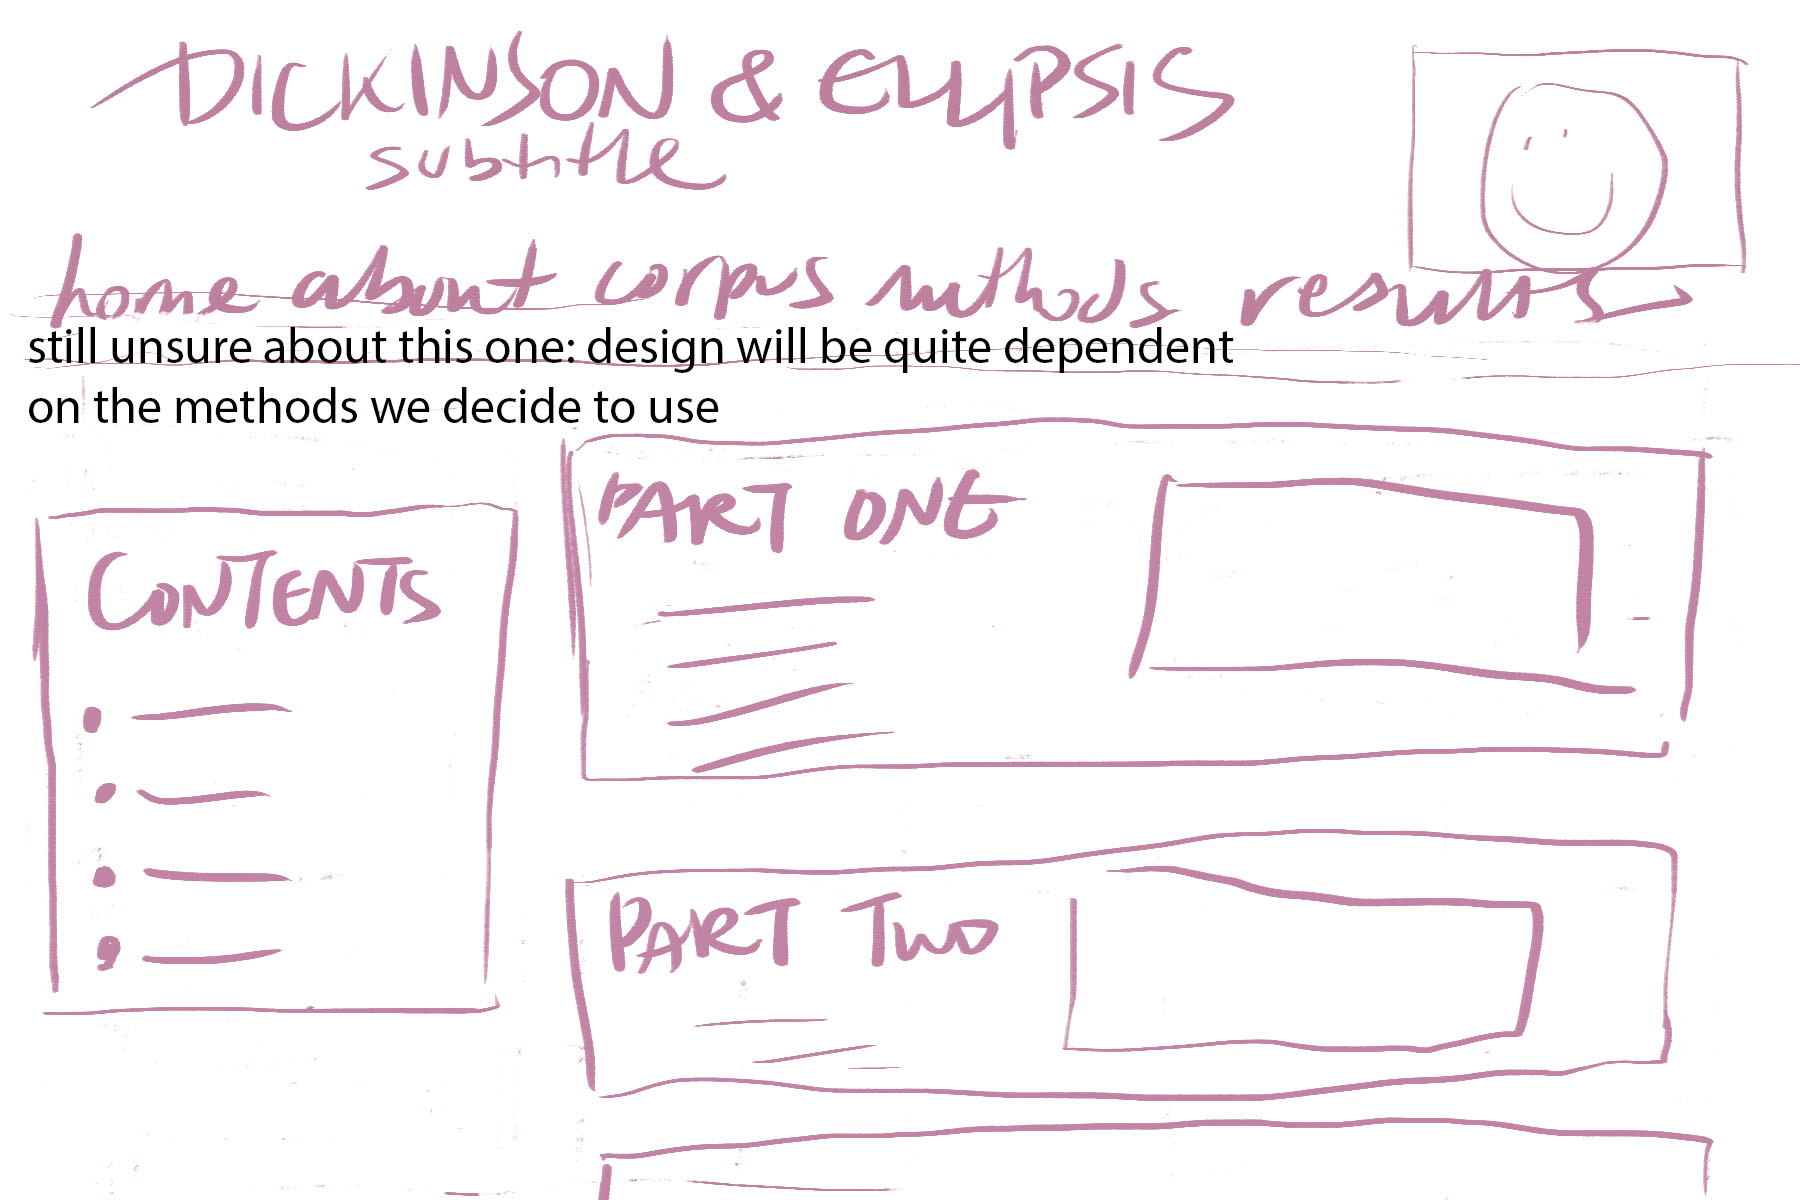 DICKINSON & ELLIPSIS
subtitle
home about corpus methods results
still unsure about this one: design will be quite dependent
on the methods we decide to use
CONTENTS
PART ONE
PART TWO